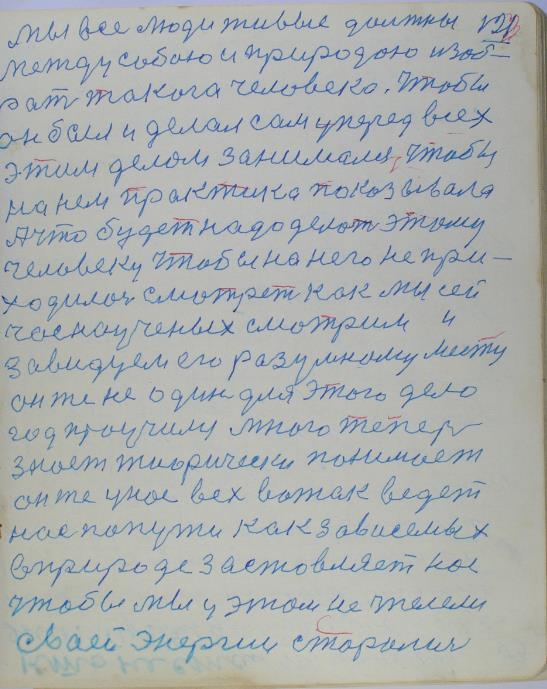 мы все люди живые должны
между собою и природою изоб-
рат такога человека. Чтобы
он был и делал сам уперед всех
этим делом занимался, чтобы
на нем практика показывала
А что будет надо делат этому
человеку чтобы на него не при-
ходилос смотрет как мы сей
час на ученых смотрим и
завидуем его разумному месту
он же не один для этого дело
год проучился много тепер
знает тиорически понимает
он же у нас всех вожак ведет
нас по пути как зависемых
в природе заставляет нас
чтобы мы у этом не жилели
сваей энергии старалис